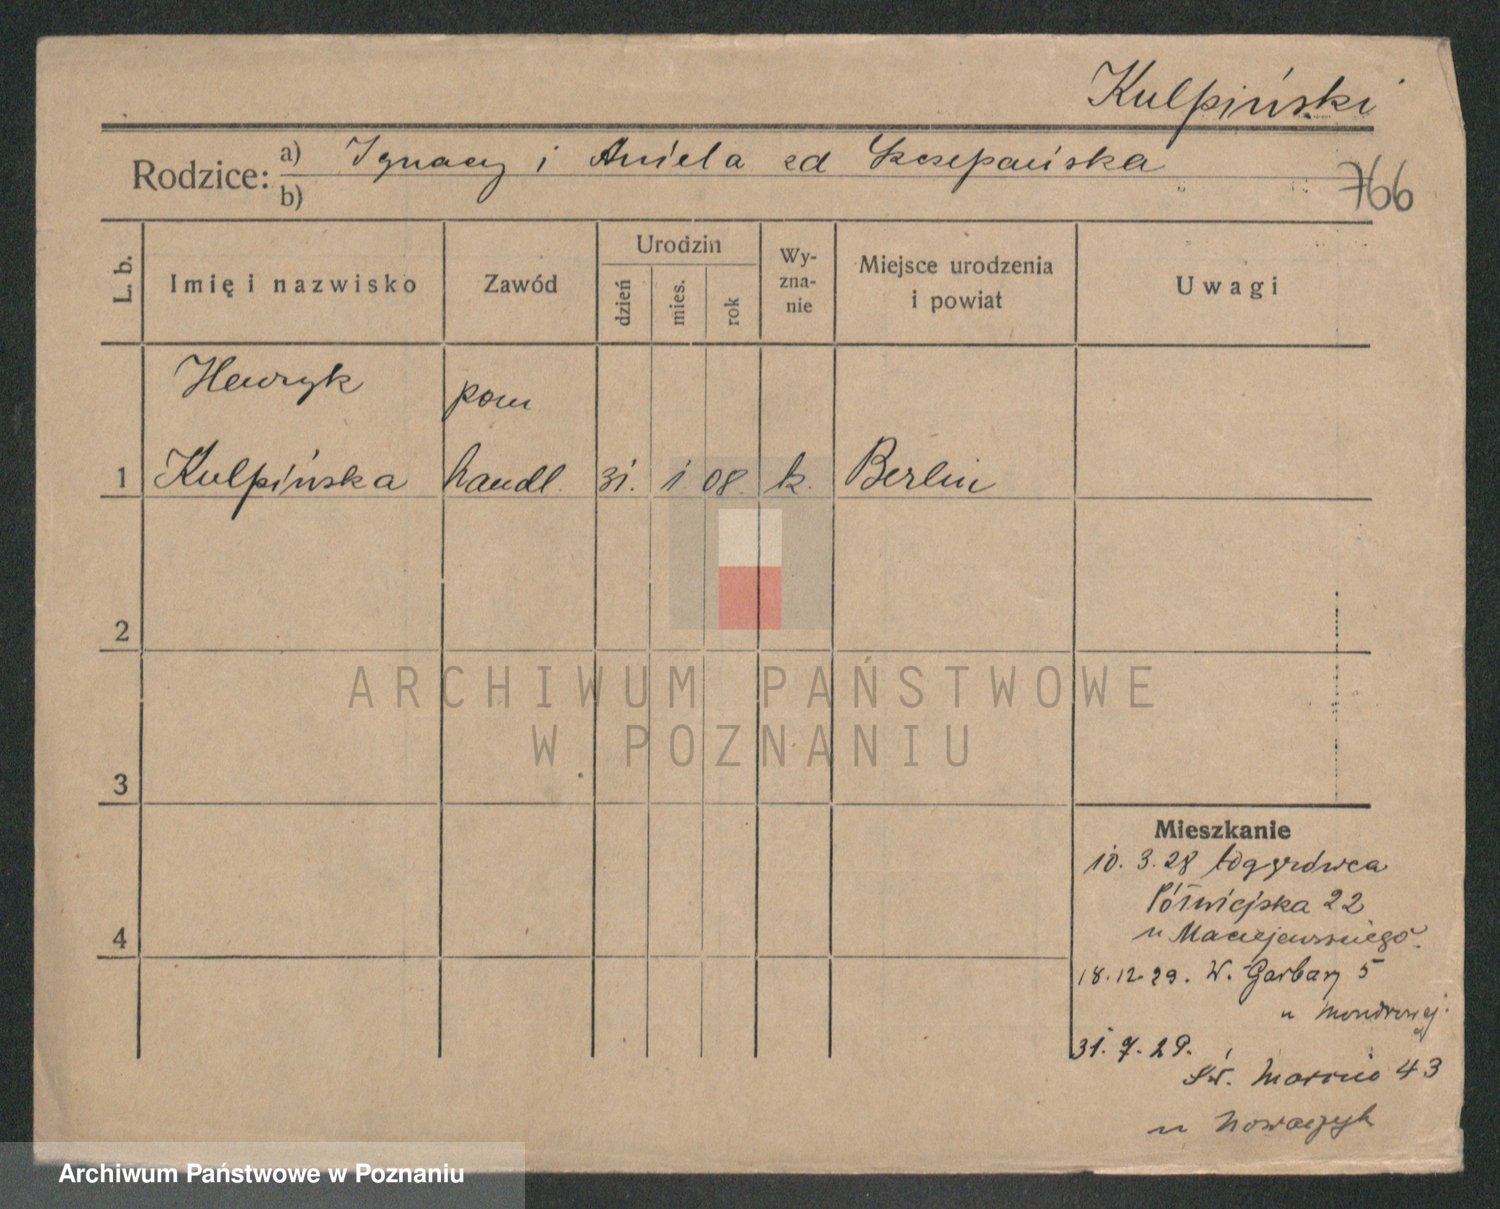 Kulpiński
Rodzice: a) Ignacy i Aniela zd Szczepańska
b)
766
L. b.
Imię i nazwisko
Zawód
Urodzin
dzień
mies.
rok
Wy-
zna-
nie
Miejsce urodzenia
i powiat
Uwagi
Henryk
pom
1
Kulpińska
handl.
31. 1 08. k. Berlin
2
3
4
Mieszkanie
10. 3. 28
Półwiejska 22
u Maciejewskiego
18.12.29. W. Garbary 5
u
31. 7. 29.
Św. Marcin 43
u Nowaczyk
ARCHIWUM PAŃSTWOWE
W POZNANIU
Archiwum Państwowe w Poznaniu